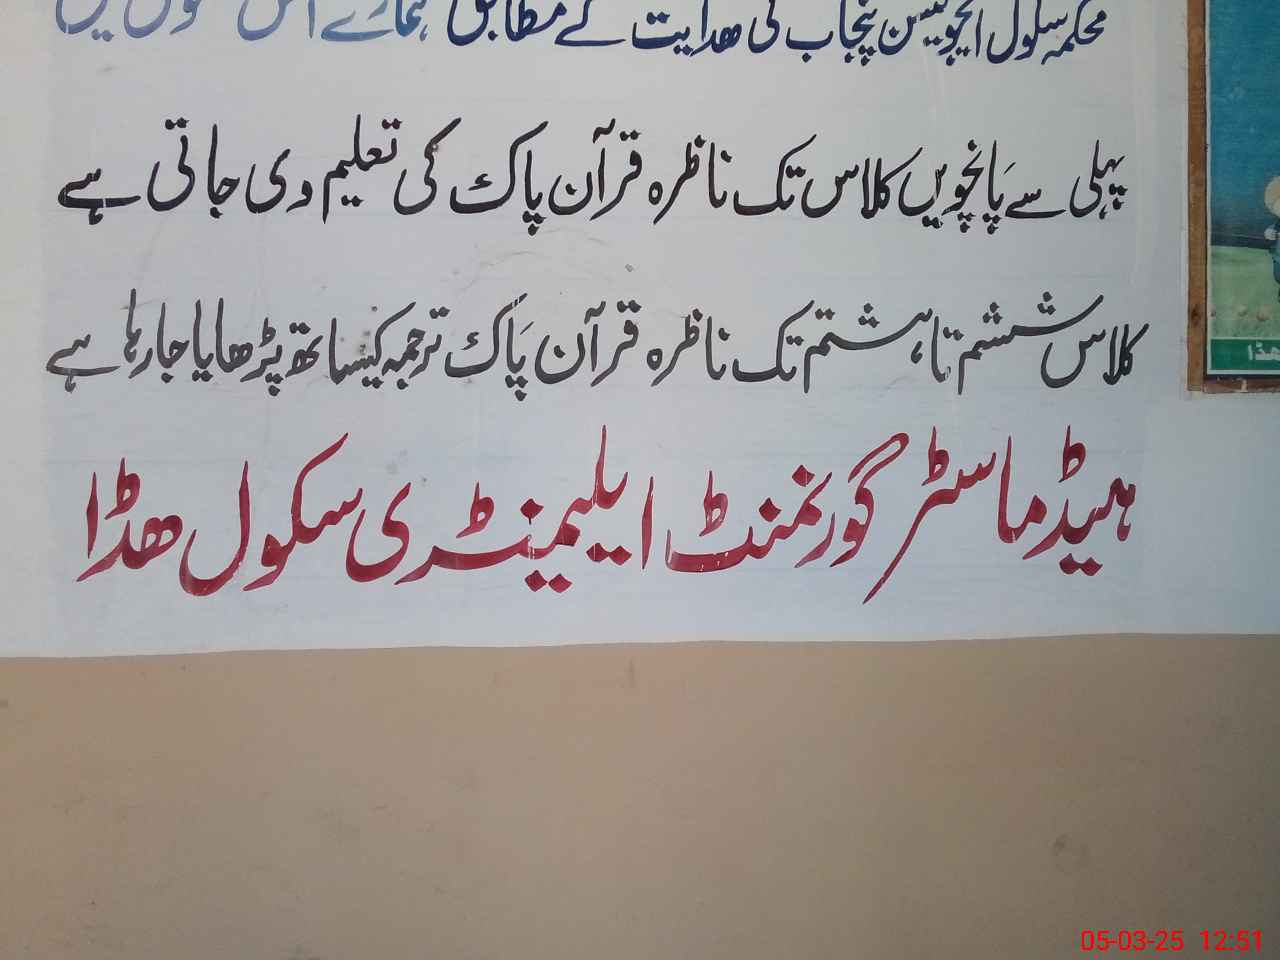 محکمہ سکول ایجوکیشن پنجاب کی ھدایت کے مطابق ہمارے اس سکول میں
پہلی سے پانچویں کلاس تک ناظرہ قرآن پاک کی تعلیم دی جاتی ہے
کلاس ششم تا ہشتم تک ناظرہ قرآن پاک ترجمہ کیساتھ پڑھایا جا رہا ہے
ہیڈ ماسٹر گورنمنٹ ایلیمنٹری سکول ھڈا
ھڈا
05-03-25 12:51